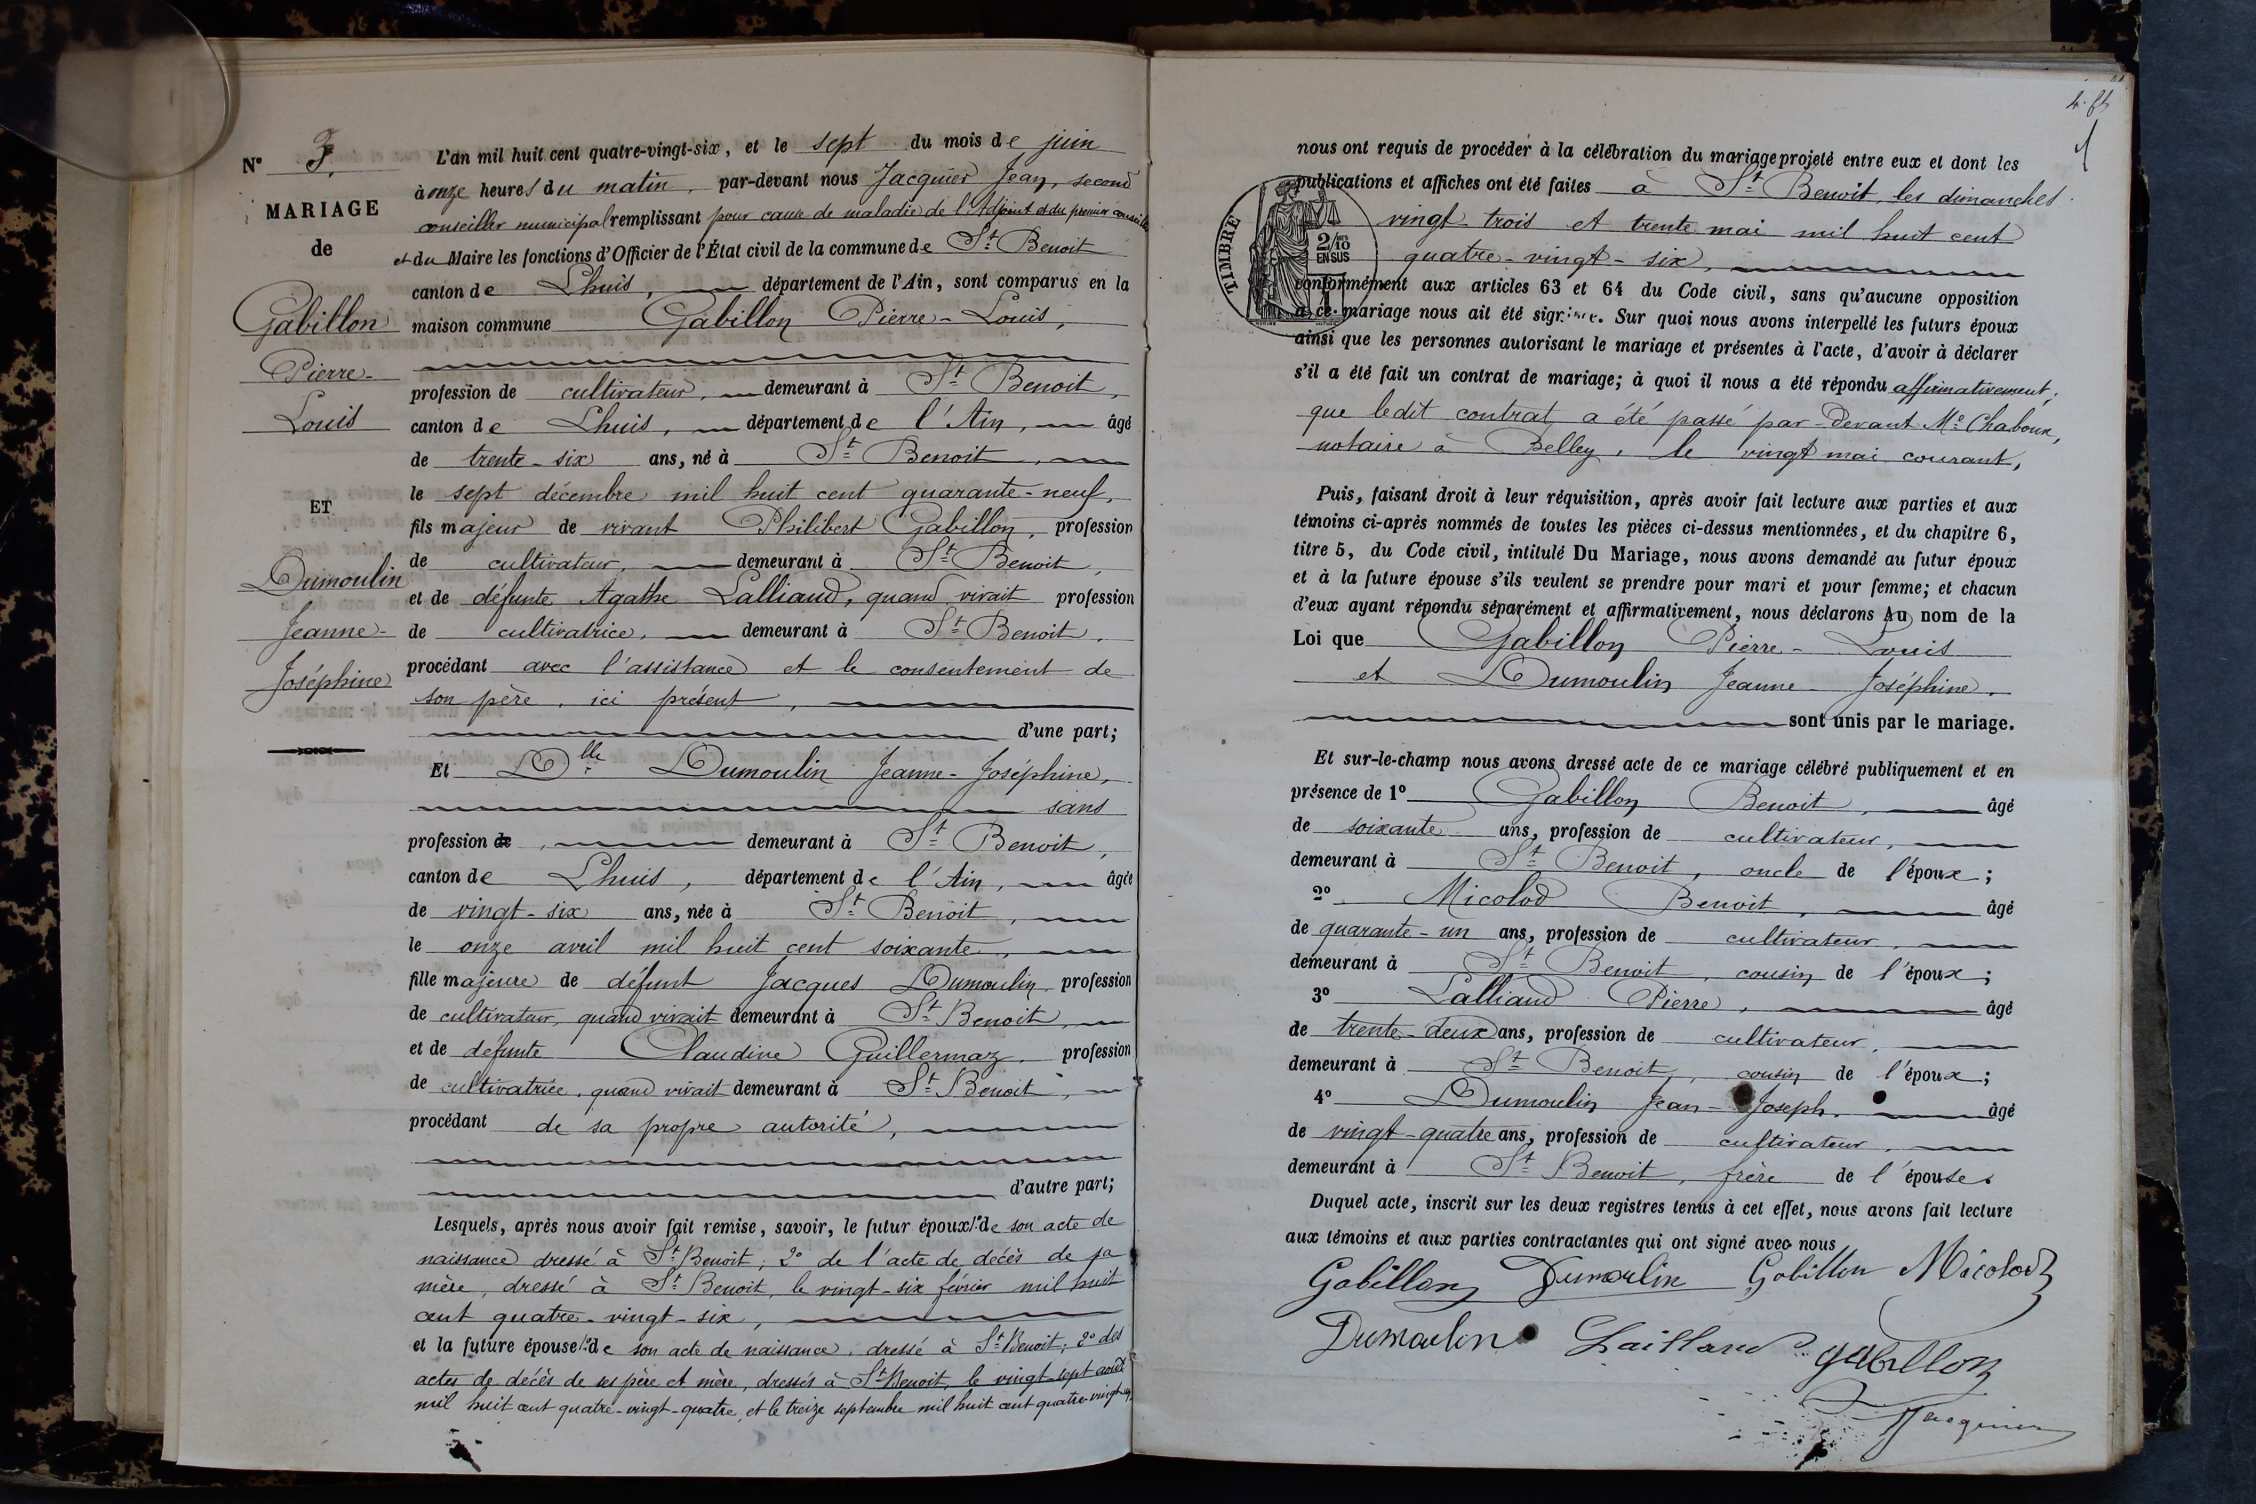 N° 3.
MARIAGE
de
Gabillon
Pierre-
Louis
ET
Dumoulin
Jeanne-
Joséphine
L'an mil huit cent quatre-vingt-six, et le sept du mois de juin
à onze heures du matin, par-devant nous Jacquier Jean, second
conseiller municipal remplissant pour cause de maladie de l'Adjoint et du premier conseiller
et du Maire les fonctions d'Officier de l'État civil de la commune de St Benoit
canton de Lhuis, département de l'Ain, sont comparus en la
maison commune Gabillon Pierre-Louis,
profession de cultivateur, demeurant à St Benoit,
canton de Lhuis, département de l'Ain, âgé
de trente-six ans, né à St Benoit,
le sept décembre mil huit cent quarante-neuf,
fils majeur de vivant Philibert Gabillon, profession
de cultivateur, demeurant à St Benoit,
et de défunte Agathe Lalliaud, quand vivait profession
de cultivatrice, demeurant à St Benoit,
procédant avec l'assistance et le consentement de
son père, ici présent,
d'une part;
Et Dlle Dumoulin Jeanne-Joséphine,
sans
profession de, demeurant à St Benoit,
canton de Lhuis, département de l'Ain, âgée
de vingt-six ans, née à St Benoit,
le onze avril mil huit cent soixante,
fille majeure de défunt Jacques Dumoulin, profession
de cultivateur, quand vivait demeurant à St Benoit,
et de défunte Claudine Guillermaz, profession
de cultivatrice, quand vivait demeurant à St Benoit,
procédant de sa propre autorité,
d'autre part;
Lesquels, après nous avoir fait remise, savoir, le futur époux 1° de son acte de
naissance dressé à St Benoit; 2° de l'acte de décès de sa
mère, dressé à St Benoit, le vingt-six février mil huit
cent quatre-vingt-six,
et la future épouse 1° de son acte de naissance, dressé à St Benoit; 2° des
actes de décès de ses père et mère, dressés à St Benoit, le vingt-sept août
mil huit cent quatre-vingt-quatre, et le treize septembre mil huit cent quatre-vingt-
nous ont requis de procéder à la célébration du mariage projeté entre eux et dont les
publications et affiches ont été faites à St Benoit, les dimanches
vingt-trois et trente mai mil huit cent
quatre-vingt-six,
TIMBRE
2/10 EN SUS
conformément aux articles 63 et 64 du Code civil, sans qu'aucune opposition
à ce mariage nous ait été signifiée. Sur quoi nous avons interpellé les futurs époux
ainsi que les personnes autorisant le mariage et présentes à l'acte, d'avoir à déclarer
s'il a été fait un contrat de mariage; à quoi il nous a été répondu affirmativement,
que ledit contrat a été passé par-Devant Me Chaboux,
notaire à Belley, le vingt mai courant,
Puis, faisant droit à leur réquisition, après avoir fait lecture aux parties et aux
témoins ci-après nommés de toutes les pièces ci-dessus mentionnées, et du chapitre 6,
titre 5, du Code civil, intitulé Du Mariage, nous avons demandé au futur époux
et à la future épouse s'ils veulent se prendre pour mari et pour femme; et chacun
d'eux ayant répondu séparément et affirmativement, nous déclarons Au nom de la
Loi que Gabillon Pierre-Louis
et Dumoulin Jeanne-Joséphine,
sont unis par le mariage.
Et sur-le-champ nous avons dressé acte de ce mariage célébré publiquement et en
présence de 1° Gabillon Benoit, âgé
de soixante ans, profession de cultivateur,
demeurant à St Benoit, oncle de l'époux;
2° Micolod Benoit, âgé
de quarante-un ans, profession de cultivateur,
demeurant à St Benoit, cousin de l'époux;
3° Lalliaud Pierre, âgé
de trente-deux ans, profession de cultivateur,
demeurant à St Benoit, cousin de l'époux;
4° Dumoulin Jean-Joseph, âgé
de vingt-quatre ans, profession de cultivateur,
demeurant à St Benoit, frère de l'épouse.
Duquel acte, inscrit sur les deux registres tenus à cet effet, nous avons fait lecture
aux témoins et aux parties contractantes qui ont signé avec nous
Gabillon Dumoulin Gabillon Micolod
Dumoulin Lailland gabillon
Jacquier